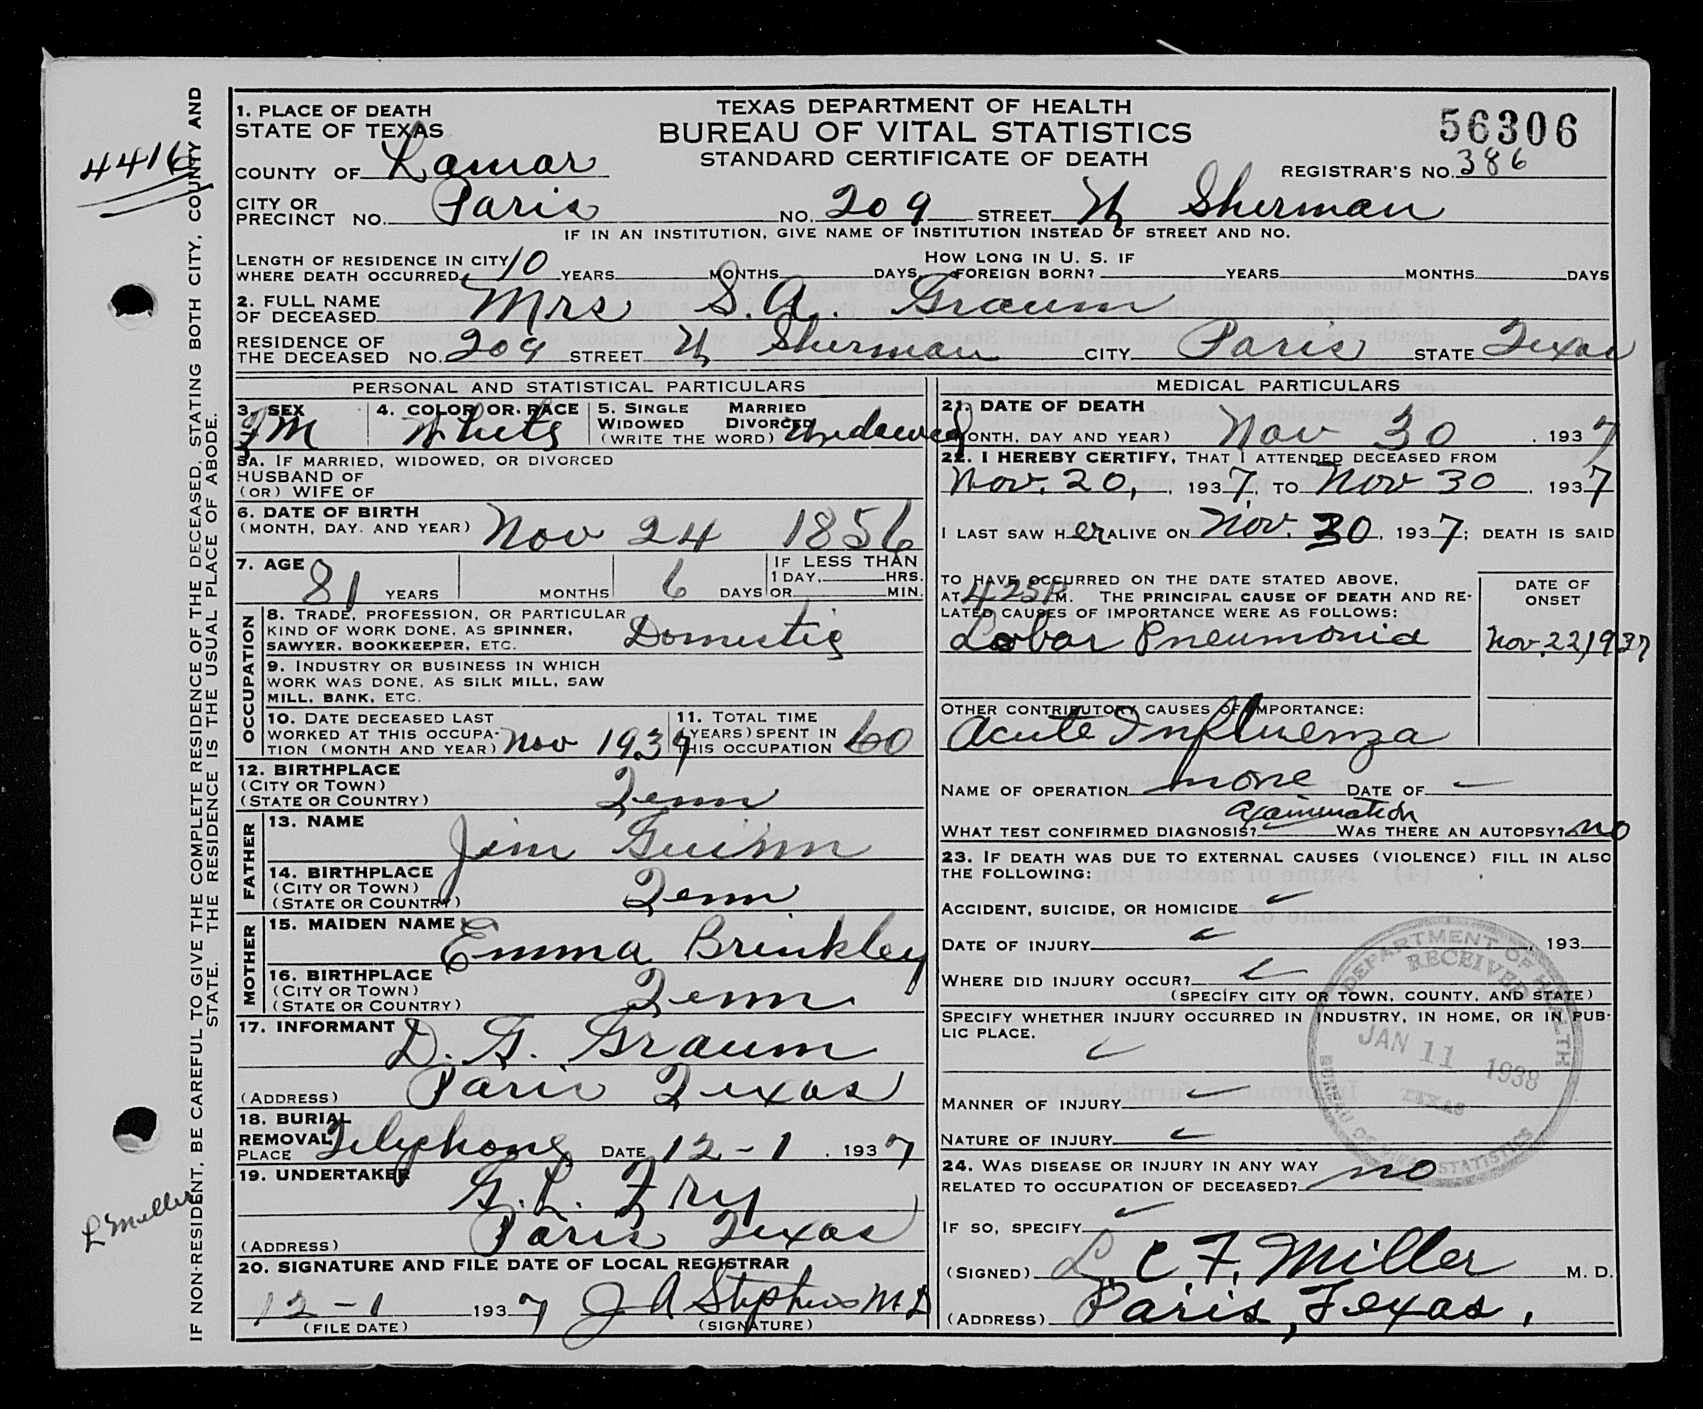 TEXAS DEPARTMENT OF HEALTH
BUREAU OF VITAL STATISTICS
STANDARD CERTIFICATE OF DEATH
56306
REGISTRAR'S NO. 386
1. PLACE OF DEATH
STATE OF TEXAS
COUNTY OF Lamar
CITY OR PRECINCT NO. Paris NO. 209 STREET N Sherman
IF IN AN INSTITUTION, GIVE NAME OF INSTITUTION INSTEAD OF STREET AND NO.
LENGTH OF RESIDENCE IN CITY WHERE DEATH OCCURRED 10 YEARS MONTHS DAYS HOW LONG IN U. S. IF FOREIGN BORN? YEARS MONTHS DAYS
2. FULL NAME OF DECEASED Mrs S.A. Graum
RESIDENCE OF THE DECEASED NO. 209 STREET N Sherman CITY Paris STATE Texas
PERSONAL AND STATISTICAL PARTICULARS
3. SEX FM
4. COLOR OR RACE White
5. SINGLE MARRIED WIDOWED DIVORCED (WRITE THE WORD) Widowed
5A. IF MARRIED, WIDOWED, OR DIVORCED
HUSBAND OF
(OR) WIFE OF
6. DATE OF BIRTH
(MONTH, DAY. AND YEAR) Nov 24 1856
7. AGE 81 YEARS MONTHS 6 DAYS IF LESS THAN 1 DAY, HRS. OR MIN.
OCCUPATION
8. TRADE, PROFESSION, OR PARTICULAR
KIND OF WORK DONE, AS SPINNER,
SAWYER, BOOKKEEPER, ETC. Domestic
9. INDUSTRY OR BUSINESS IN WHICH
WORK WAS DONE, AS SILK MILL, SAW
MILL, BANK, ETC.
10. DATE DECEASED LAST
WORKED AT THIS OCCUPA-
TION (MONTH AND YEAR) Nov 1937
11. TOTAL TIME
(YEARS) SPENT IN
THIS OCCUPATION 60
12. BIRTHPLACE
(CITY OR TOWN)
(STATE OR COUNTRY) Tenn
FATHER
13. NAME Jim Guinn
14. BIRTHPLACE
(CITY OR TOWN)
(STATE OR COUNTRY) Tenn
MOTHER
15. MAIDEN NAME Emma Brinkley
16. BIRTHPLACE
(CITY OR TOWN)
(STATE OR COUNTRY) Tenn
17. INFORMANT D. G. Graum
(ADDRESS) Paris Texas
18. BURIAL
REMOVAL
PLACE Telephone DATE 12-1, 1937
19. UNDERTAKER G. L. Fry
(ADDRESS) Paris Texas
20. SIGNATURE AND FILE DATE OF LOCAL REGISTRAR
12-1 1937 J A Stephens MD
(FILE DATE) (SIGNATURE)
MEDICAL PARTICULARS
21. DATE OF DEATH
(MONTH, DAY AND YEAR) Nov 30, 1937
22. I HEREBY CERTIFY, THAT I ATTENDED DECEASED FROM
Nov. 20, , 1937, TO Nov 30, 1937
I LAST SAW HER ALIVE ON Nov. 30, 1937; DEATH IS SAID
TO HAVE OCCURRED ON THE DATE STATED ABOVE,
AT 4 25 P M. THE PRINCIPAL CAUSE OF DEATH AND RE-
LATED CAUSES OF IMPORTANCE WERE AS FOLLOWS:
DATE OF ONSET
Lobar Pneumonia Nov. 22, 1937
OTHER CONTRIBUTORY CAUSES OF IMPORTANCE:
Acute Influenza
NAME OF OPERATION none DATE OF
WHAT TEST CONFIRMED DIAGNOSIS? Examination WAS THERE AN AUTOPSY? no
23. IF DEATH WAS DUE TO EXTERNAL CAUSES (VIOLENCE) FILL IN ALSO
THE FOLLOWING:
ACCIDENT, SUICIDE, OR HOMICIDE
DATE OF INJURY , 193
WHERE DID INJURY OCCUR?
(SPECIFY CITY OR TOWN, COUNTY, AND STATE)
SPECIFY WHETHER INJURY OCCURRED IN INDUSTRY, IN HOME, OR IN PUB-
LIC PLACE.
MANNER OF INJURY
NATURE OF INJURY
24. WAS DISEASE OR INJURY IN ANY WAY
RELATED TO OCCUPATION OF DECEASED? no
IF SO, SPECIFY
(SIGNED) L. C. F. Miller M. D.
(ADDRESS) Paris, Texas,
DEPARTMENT OF HEALTH
RECEIVED
JAN 11 1938
TEXAS
BUREAU OF VITAL STATISTICS
4416
L Miller
IF NON-RESIDENT, BE CAREFUL TO GIVE THE COMPLETE RESIDENCE OF THE DECEASED, STATING BOTH CITY, COUNTY AND
STATE. THE RESIDENCE IS THE USUAL PLACE OF ABODE.